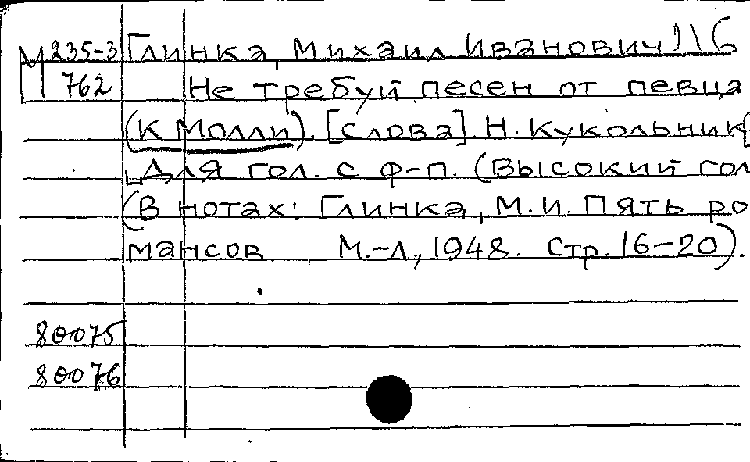 М 235-3 Глинка, Михаил Иванович
762 Не требуй песен от певца
(К Молли). [Слова] Н. Кукольник
Для гол. с ф-п. (Высокий гол
(В нотах: Глинка, М.И. Пять ро
мансов М.-Л, 1948. Стр. 16-20).
80075
80076